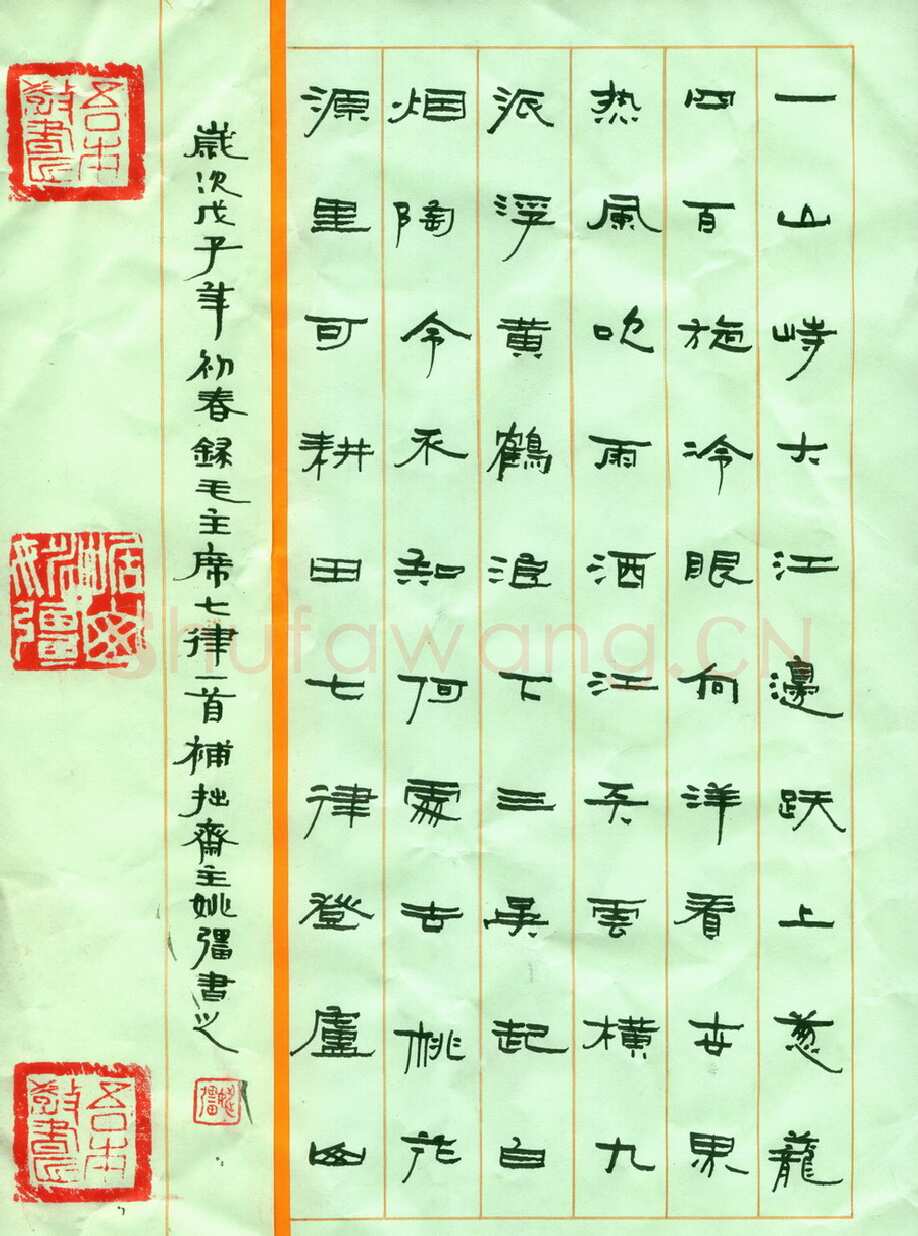 一山峙大江邊跃上葱蘢
四百旋冷眼向洋看世界
热風吹雨洒江天雲横九
派浮黄鶴浪下三吴起白
烟陶令不知何處去桃花
源里可耕田七律登廬山
歲次戊子年初春録毛主席七律一首補拙齋主姚彊書之
shufawang.CN